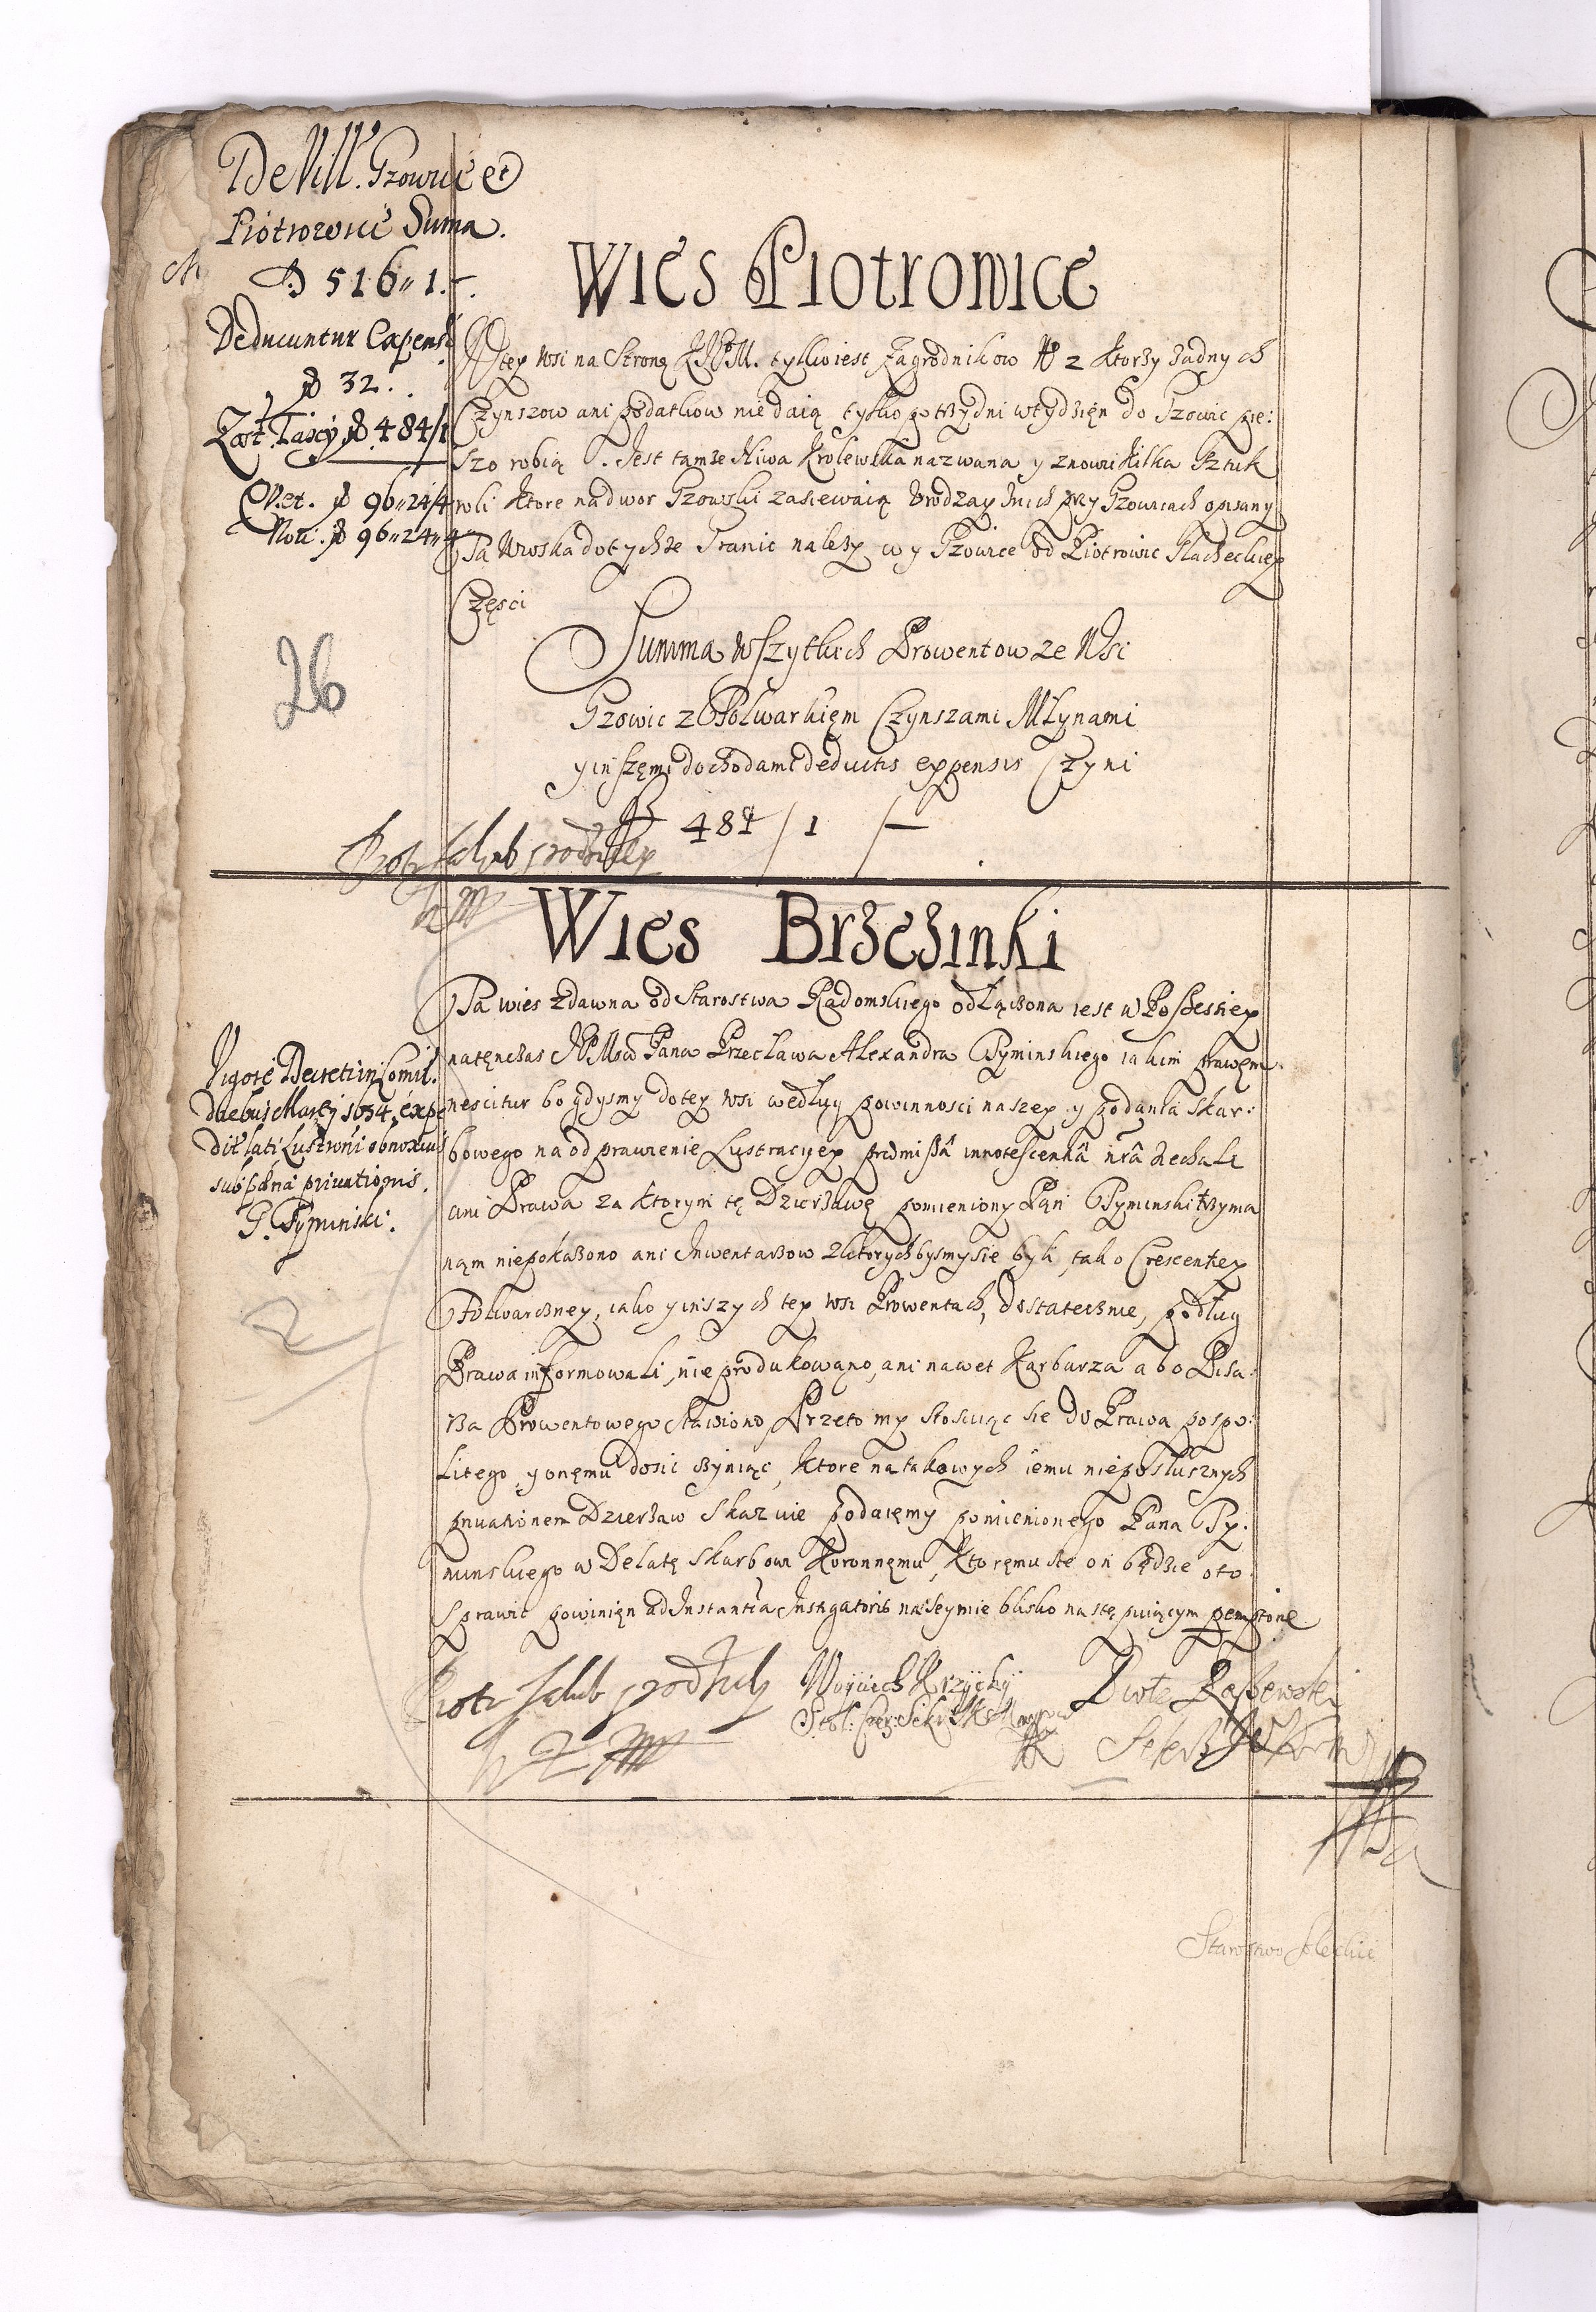 De Vill. Gzowicé et
Piotrowicé Suma.
516 〃 1. –.
Deducuntur Expens
32.
484/1
Vet. 96〃24/4
Nou. 96〃24〃4
26
Wies Piotrowice
W tey Wsi na Stronę tylko iest Zagrodnikow No 2 Ktorzy żadnych
Czynszow ani podatkow nie daią tylko po trzy dni w tydzięn do Gzowic pie:
szo robią. Jest tamże Niwa Krolewska nazwana y znowu kilka Sztuk
roli Ktore na dwor Gzowski zasiewaią Vrodzay Inich przy Gzowicach opisany
Ta Wioska do tychże Granic należy co y Gzowice od Piotrowic Slacheckiey
Częsci
Summa Wszytkich Prowentow ze Wsi
Gzowic z Folwarkięm Czynszami Młynami
y inszęmi dochodami deductis expensis Czyni
484 / 1 /—
Piotr Jakub
Wies Brzezinki
Ta wies zdawna od Starostwa Radomskiego odłączona iest w Possessiey
natęnczas JeoMsci Pana Przecława Alexandra Tyminskiego iakim prawęm
nescitur bo gdysmy do tey Wsi według powinnosci naszey y podania Skar:
bowego na odprawienie Lustracyey præmissâ innotescentiâ nrâ ziechali
ani Prawa za Ktorym tę Dzierżawę pomieniony Pan Tyminski trzyma
nąm niepokazono ani Inwentarzow z ktorychbysmy sie byli, tak o Crescentiey
Folwarczney, iako y inszych tey Wsi Prowentach, dostatecznie, podług
Prawa informowali, nie produkowano, ani nawet Karbarza abo Pisa:
rza Prowentowego stawiono Przeto my stosuiąc sie do Prawa pospo:
litego, y onęmu dosic czyniąc, Ktore na takowych iemu nieposłusznych
privationem Dzierżaw Skazuie podaięmy pomienionego Pana Ty:
minskiego w Delatę Skarbowi Koronnęmu, Ktoręmu sie on będzie o to
sprawic powinięn ad Instantiã Instigatoris na Seymie blisko nastę puiącym
Vigore Decreti in Comit.
diebus Martij 1654, expe
sub pœna priuationis.
G. Tyminski.
Piotr Jakub
Woyciech Krzycky
Starostwo Soleckie